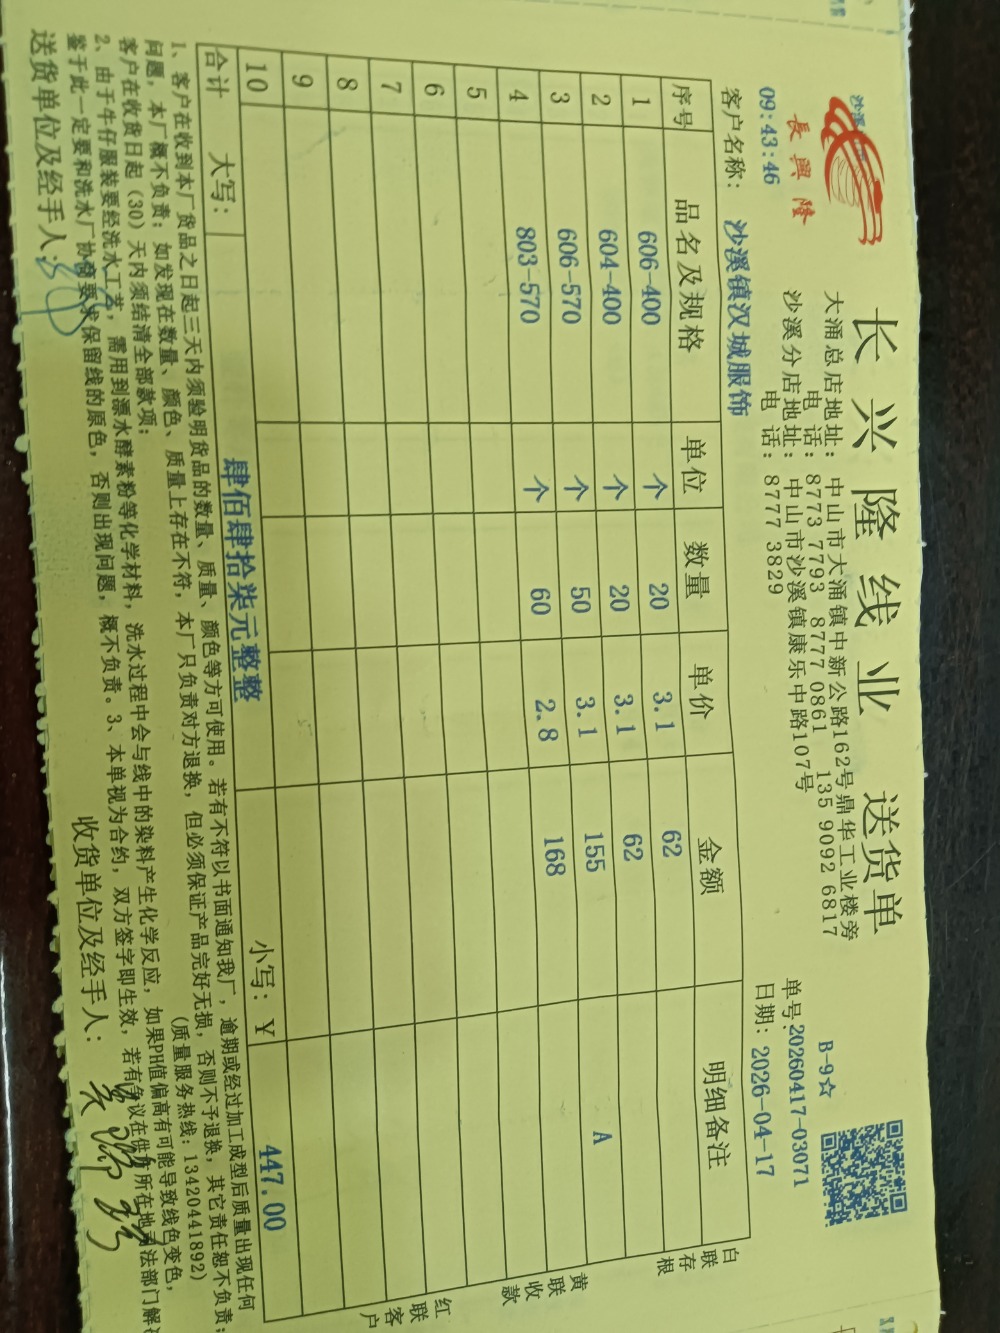 沙溪
長興隆
长兴隆线业 送货单
大涌总店地址: 中山市大涌镇中新公路162号鼎华工业楼旁
电 话: 8773 7793 8777 0861 135 9092 6817
沙溪分店地址: 中山市沙溪镇康乐中路107号
电 话: 8777 3829
B-9☆
单号:20260417-03071
日期: 2026-04-17
09:43:46
客户名称: 沙溪镇汉城服饰
序号 品名及规格 单位 数量 单价 金额 明细备注
1 606-400 个 20 3.1 62
2 604-400 个 20 3.1 62
3 606-570 个 50 3.1 155 A
4 803-570 个 60 2.8 168
5
6
7
8
9
10
合计 大写: 肆佰肆拾柒元整整 小写: Y 447.00
白联存根
黄联收款
红联客户
1、客户在收到本厂货品之日起三天内须验明货品的数量、质量、颜色等方可使用。若有不符以书面通知我厂,逾期或经过加工成型后质量出现任何
问题,本厂概不负责;如发现在数量、颜色、质量上存在不符,本厂只负责对方退换,但必须保证产品完好无损,否则不予退换,其它责任恕不负责;
客户在收货日起(30)天内须结清全部款项; (质量服务热线:13420441892)
2、由于牛仔服装要经洗水工艺,需用到漂水酵素粉等化学材料,洗水过程中会与线中的染料产生化学反应,如果PH值偏高有可能导致线色变色,
鉴于此一定要和洗水厂协商要求保留线的原色,否则出现问题,概不负责。3、本单视为合约,双方签字即生效,若有争议在供方所在地司法部门解
送货单位及经手人: 收货单位及经手人: